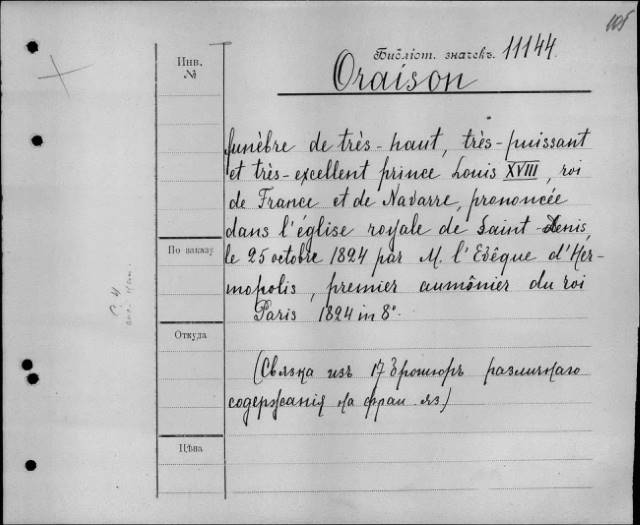 105
Инв.
№
Библіот. значекъ. 11144.
Oraison
funèbre de très-haut, très-puissant
et très-excellent prince Louis XVIII, roi
de France et de Navarre, prononcée
dans l'église royale de Saint-Denis,
le 25 octobre 1824 par M. l'Evêque d'Her-
mopolis, premier aumônier du roi
Paris 1824 in 8°
По заказу
Откуда
(Связка изъ 17 брошюръ различнаго
содержанія на фран. яз.)
Цѣна